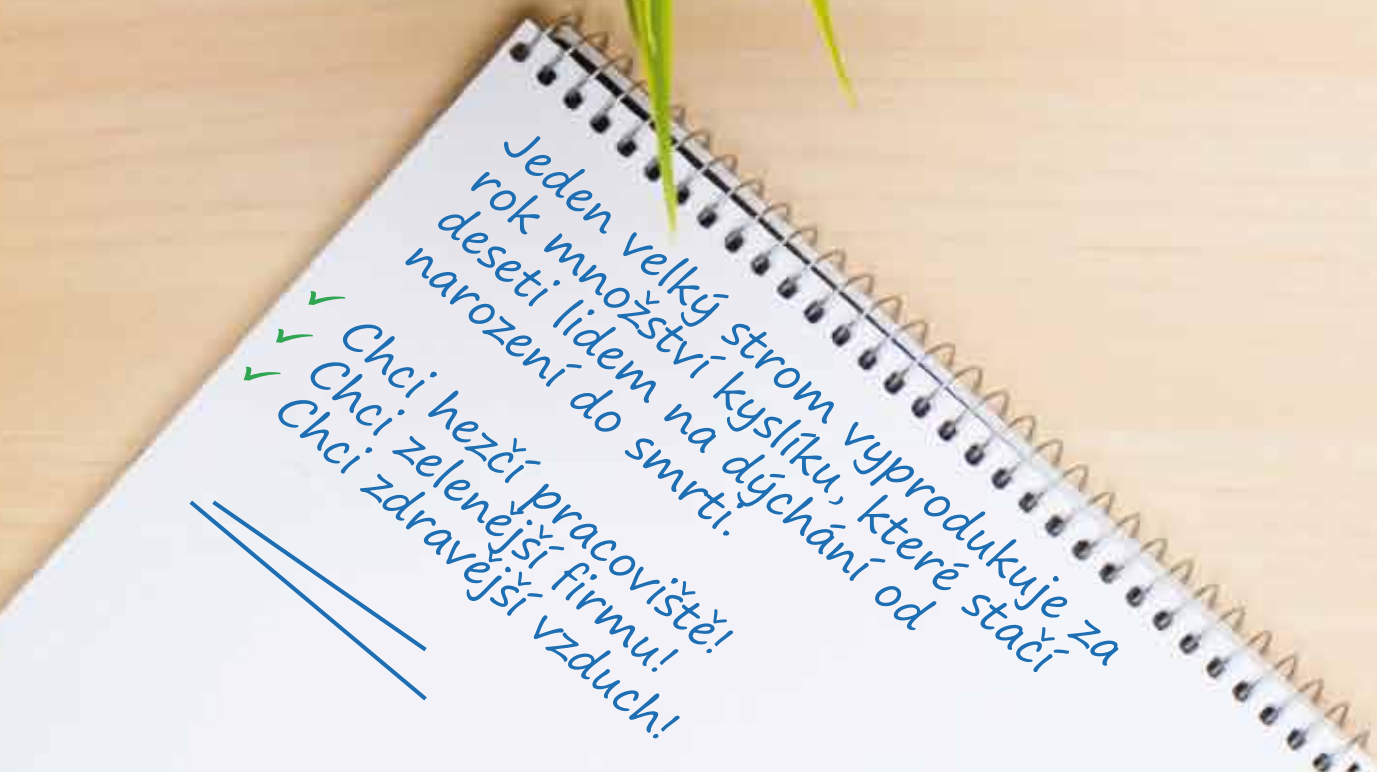 Jeden velký strom vyprodukuje za
rok množství kyslíku, které stačí
deseti lidem na dýchání od
narození do smrti.
Chci hezčí pracoviště!
Chci zelenější firmu!
Chci zdravější vzduch!